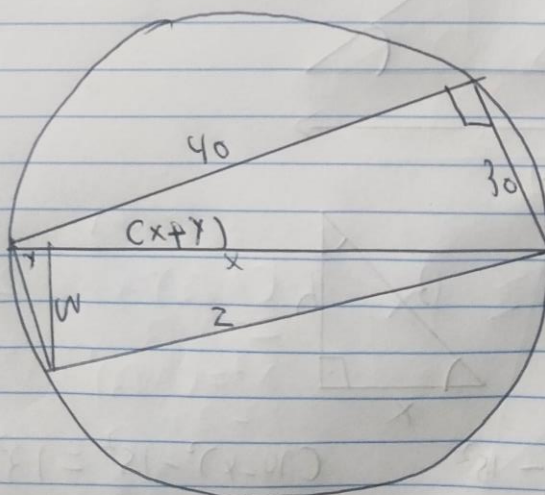 40
30
(x+y)
y
x
W
z